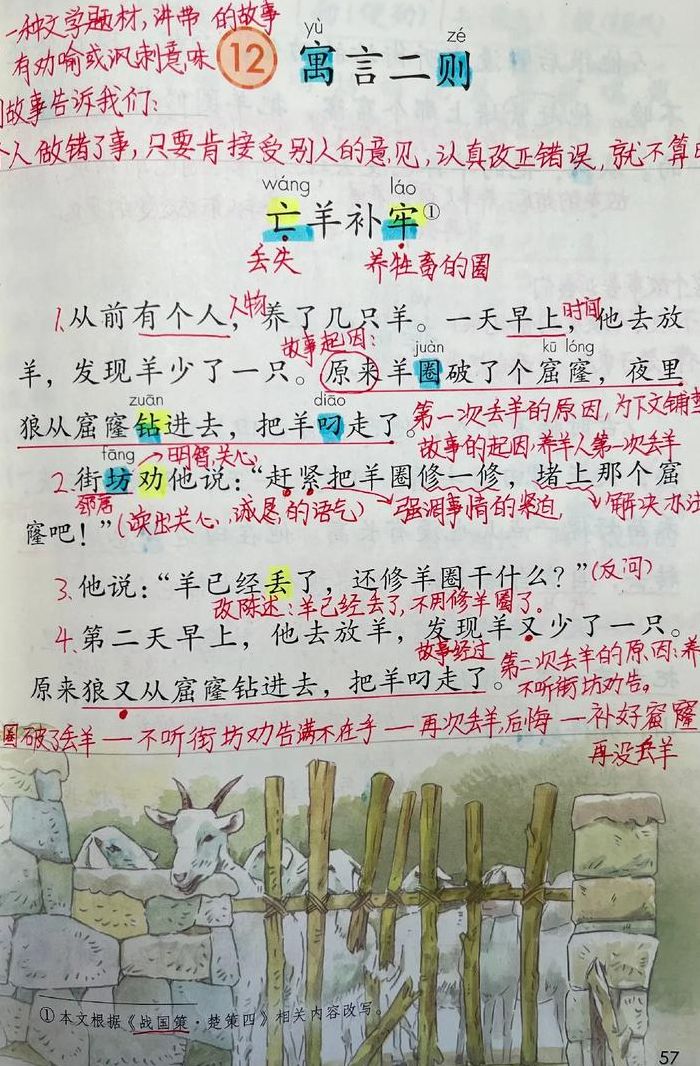 一种文学题材,讲带 的故事
有劝喻或讽刺意味
yù zé
12 寓言二则
故事告诉我们:
人做错了事,只要肯接受别人的意见,认真改正错误,就不算
wáng láo
亡羊补牢①
丢失 养牲畜的圈
1.从前有个人,养了几只羊。一天早上,他去放
人物 时间
故事起因:
juàn kū lóng
羊,发现羊少了一只。原来羊圈破了个窟窿,夜里
zuān diāo
狼从窟窿钻进去,把羊叼走了。
第一次丢羊的原因,为下文铺垫
故事的起因:养羊人第一次丢羊
fāng 明智,关心
2.街坊劝他说:“赶紧把羊圈修一修,堵上那个窟
邻居
窿吧!”(读出关心、诚恳的语气) 强调事情的紧迫 解决办法
3.他说:“羊已经丢了,还修羊圈干什么?”(反问)
改陈述:羊已经丢了,不用修羊圈了。
4.第二天早上,他去放羊,发现羊又少了一只。
故事经过
第二次丢羊的原因:养
原来狼又从窟窿钻进去,把羊叼走了。
不听街坊劝告。
圈破了丢羊—不听街坊劝告满不在乎—再次丢羊,后悔—补好窟窿
再没丢羊
①本文根据《战国策·楚策四》相关内容改写。
57